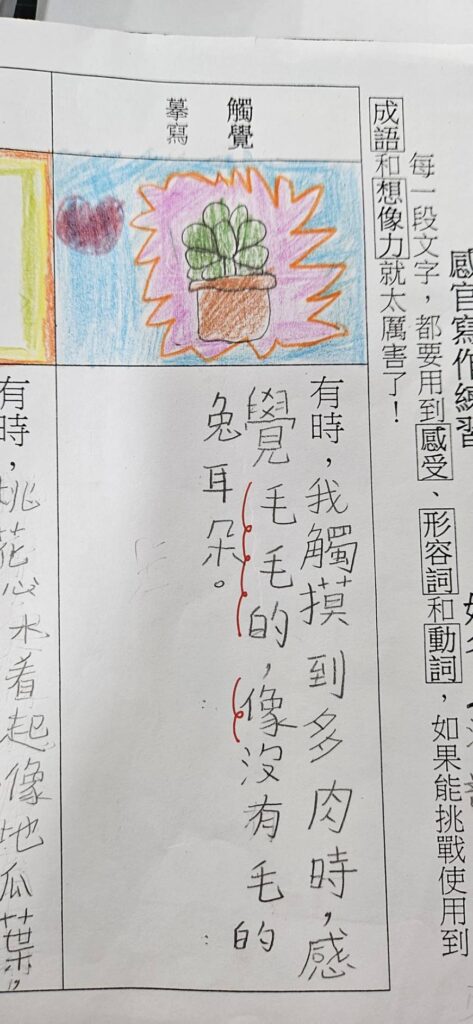 感官寫作練習
每一段文字，都要用到感受、形容詞和動詞，如果能挑戰使用到
成語和想像力就太厲害了！
觸覺
摹寫
有時，我觸摸到多肉時，感
覺毛毛的，像沒有毛的
兔耳朵。
有時，桃花心木看起像地瓜葉，